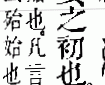 之初也
也。凡言
殆始也